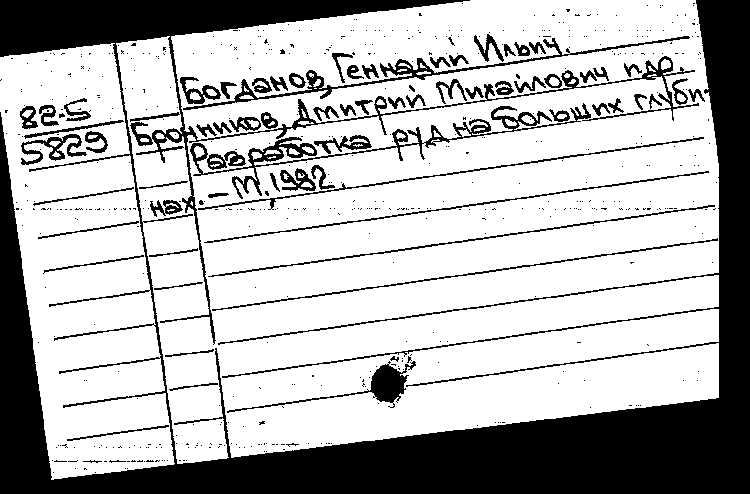 Богданов, Геннадий Ильич.
82-5
5829
Бронников, Дмитрий Михайлович и др.
Разработка руд на больших глуби-
нах. – М., 1982.